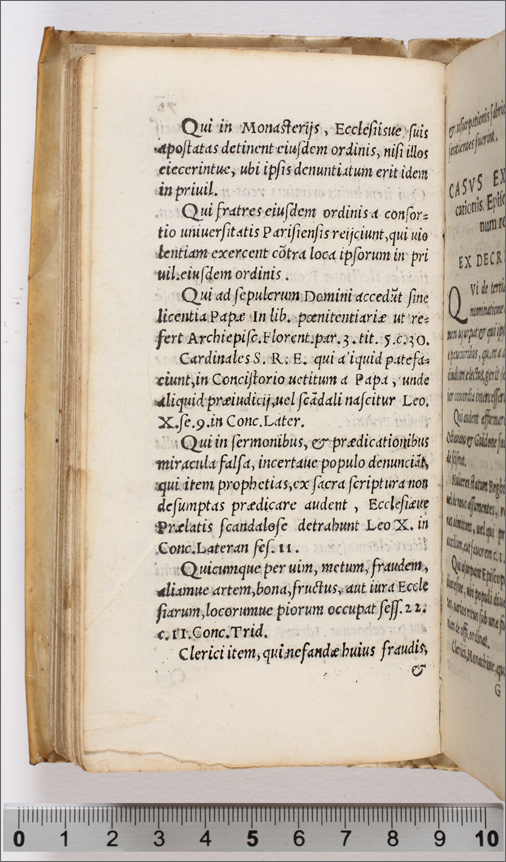 Qui in Monasterijs, Ecclesiisue suis
apostatas detinent eiusdem ordinis, nisi illos
eiecerintue, ubi ipsis denuntiatum erit idem
in priuil.
Qui fratres eiusdem ordinis a consor-
tio uniuersitatis Parisiensis reijciunt, qui uio
lentiam exercent cõtra loca ipsorum in pri
uil. eiusdem ordinis.
Qui ad sepulcrum Domini accedũt sine
licentia Papæ In lib. pœnitentiariæ ut re-
fert Archiepisc. Florent. par. 3. tit. 5. c. 30.
Cardinales S. R. E. qui aliquid patefa-
ciunt, in Concistorio uetitum a Papa, unde
aliquid præiudicij, uel scãdali nascitur Leo.
X. se. 9. in Conc. Later.
Qui in sermonibus, & prædicationibus
miracula falsa, incertaue populo denunciãt,
qui item prophetias, ex sacra scriptura non
desumptas prædicare audent, Ecclesiæue
Prælatis scandalose detrahunt Leo X. in
Conc. Lateran ses. 11.
Quicumque per uim, metum, fraudem,
aliamue artem, bona, fructus, aut iura Eccle
siarum, locorumue piorum occupat sess. 22.
c. 11. Conc. Trid.
Clerici item, qui nefandæ huius fraudis,
&
CASVS EX
cationis, Episc
num re
EX DECR
QVi de terti
nominatione
G
0 1 2 3 4 5 6 7 8 9 10